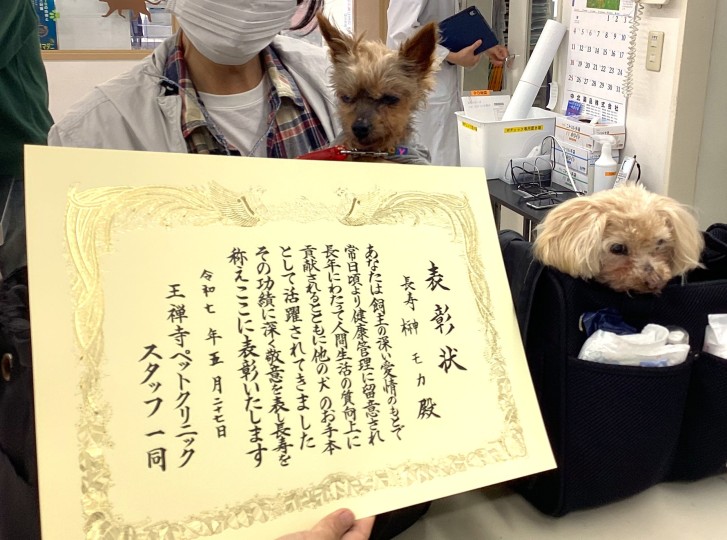 表彰状
長寿 榊 モカ 殿
あなたは飼主の深い愛情のもとで
常日頃より健康管理に留意され
長年にわたって人間生活の質向上に
貢献されるとともに他の犬のお手本
として活躍されてきました
その功績に深く敬意を表し長寿を
称えここに表彰いたします
令和七年五月二十七日
王禅寺ペットクリニック
スタッフ一同